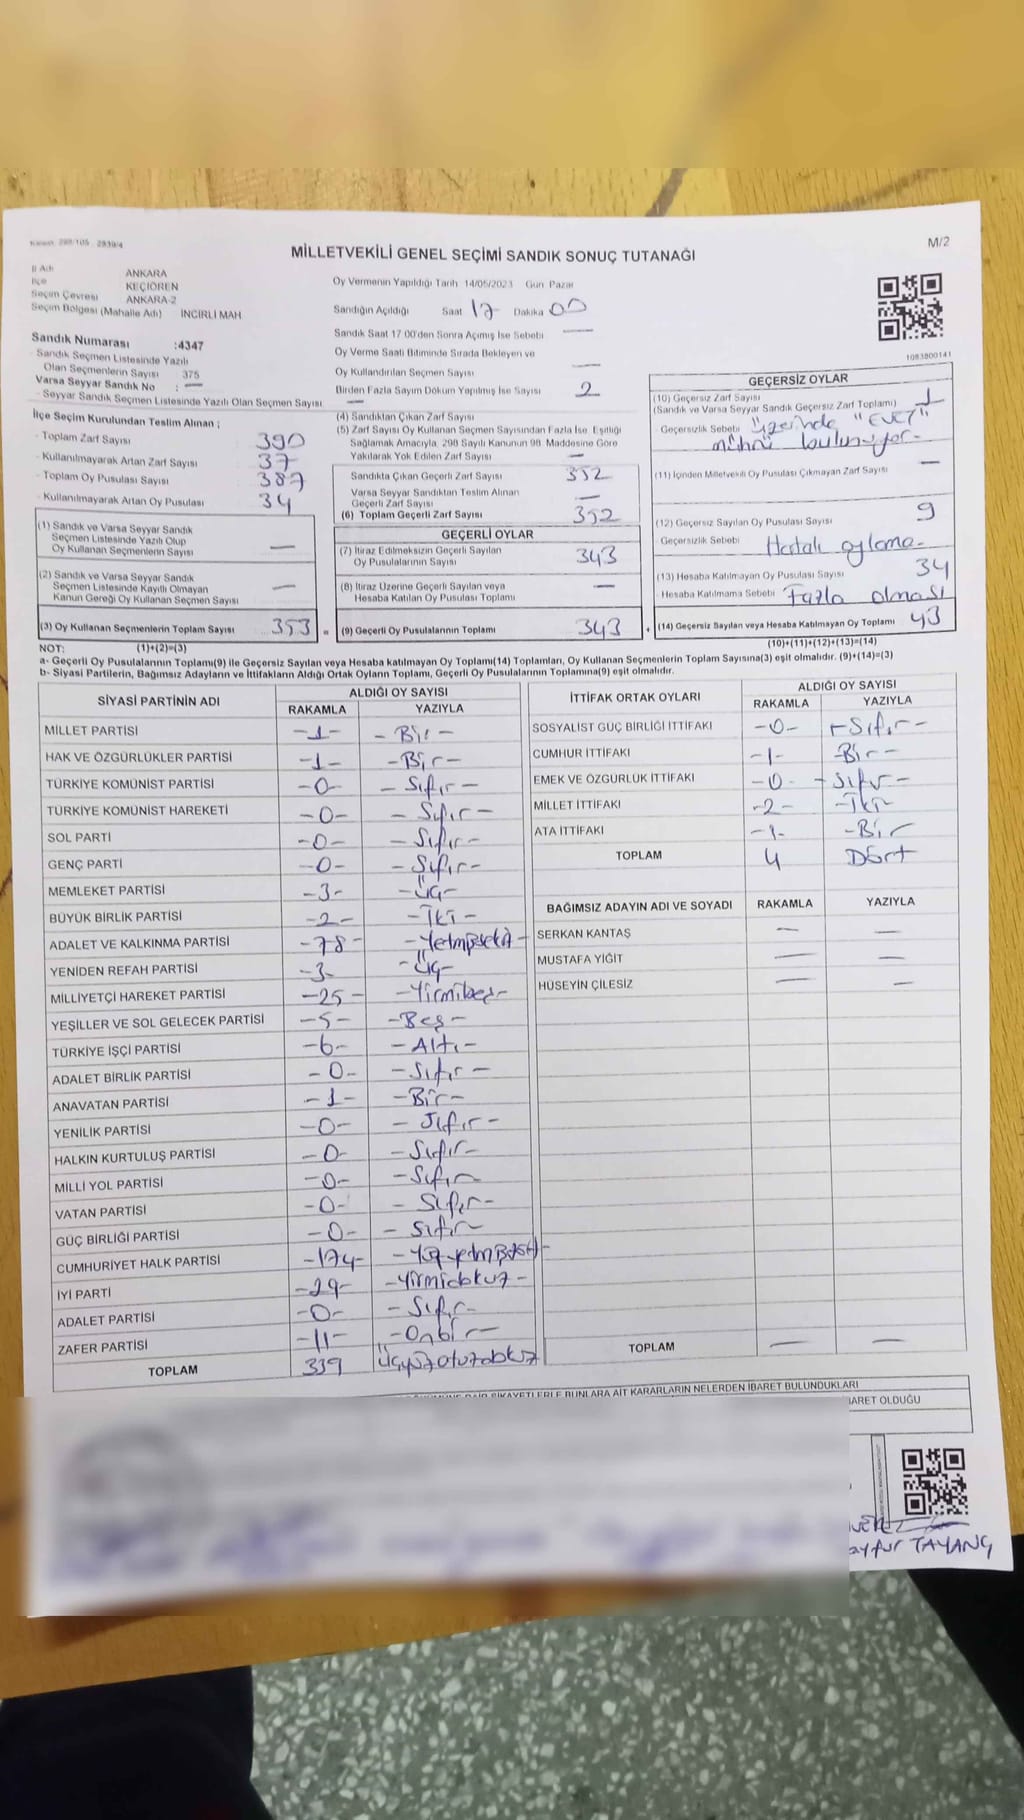 MİLLETVEKİLİ GENEL SEÇİMİ SANDIK SONUÇ TUTANAĞI
M/2
İl Adı ANKARA
İlçe KEÇİÖREN
Seçim Çevresi ANKARA-2
Seçim Bölgesi (Mahalle Adı) İNCİRLİ MAH
Sandık Numarası :4347
Sandık Seçmen Listesinde Yazılı
Olan Seçmenlerin Sayısı 375
Varsa Seyyar Sandık No : —
- Seyyar Sandık Seçmen Listesinde Yazılı Olan Seçmen Sayısı —
Oy Vermenin Yapıldığı Tarih 14/05/2023 Gün Pazar
Sandığın Açıldığı Saat 17 Dakika 00
Sandık Saat 17 00'den Sonra Açımış İse Sebebi —
Oy Verme Saati Bitiminde Sırada Bekleyen ve
Oy Kullandırılan Seçmen Sayısı —
Birden Fazla Sayım Döküm Yapılmış İse Sayısı 2
1083800141
İlçe Seçim Kurulundan Teslim Alınan ;
- Toplam Zarf Sayısı 390
- Kullanılmayarak Artan Zarf Sayısı 37
- Toplam Oy Pusulası Sayısı 387
- Kullanılmayarak Artan Oy Pusulası 34
(1) Sandık ve Varsa Seyyar Sandık
Seçmen Listesinde Yazılı Olup
Oy Kullanan Seçmenlerin Sayısı —
(2) Sandık ve Varsa Seyyar Sandık
Seçmen Listesinde Kayıtlı Olmayan
Kanun Gereği Oy Kullanan Seçmen Sayısı —
(3) Oy Kullanan Seçmenlerin Toplam Sayısı 353 =
(4) Sandıktan Çıkan Zarf Sayısı
(5) Zarf Sayısı Oy Kullanan Seçmen Sayısından Fazla İse Eşitliği
Sağlamak Amacıyla, 298 Sayılı Kanunun 98. Maddesine Göre
Yakılarak Yok Edilen Zarf Sayısı —
Sandıkta Çıkan Geçerli Zarf Sayısı 352
Varsa Seyyar Sandıktan Teslim Alınan
Geçerli Zarf Sayısı —
(6) Toplam Geçerli Zarf Sayısı 352
GEÇERLİ OYLAR
(7) İtiraz Edilmeksizin Geçerli Sayılan
Oy Pusulalarının Sayısı 343
(8) İtiraz Üzerine Geçerli Sayılan veya
Hesaba Katılan Oy Pusulası Toplamı —
(9) Geçerli Oy Pusulalarının Toplamı 343 +
GEÇERSİZ OYLAR
(10) Geçersiz Zarf Sayısı
(Sandık ve Varsa Seyyar Sandık Geçersiz Zarf Toplamı) 1
Geçersizlik Sebebi üzerinde "EVET"
mührü bulunuyor-
(11) İçinden Milletvekili Oy Pusulası Çıkmayan Zarf Sayısı —
(12) Geçersiz Sayılan Oy Pusulası Sayısı 9
Geçersizlik Sebebi Hatalı oylama-
(13) Hesaba Katılmayan Oy Pusulası Sayısı 34
- Hesaba Katılmama Sebebi Fazla olması
(14) Geçersiz Sayılan veya Hesaba Katılmayan Oy Toplamı 43
NOT: (1)+(2)=(3) (10)+(11)+(12)+(13)=(14)
a- Geçerli Oy Pusulalarının Toplamı(9) ile Geçersiz Sayılan veya Hesaba katılmayan Oy Toplamı(14) Toplamları, Oy Kullanan Seçmenlerin Toplam Sayısına(3) eşit olmalıdır. (9)+(14)=(3)
b- Siyasi Partilerin, Bağımsız Adayların ve İttifakların Aldığı Ortak Oyların Toplamı, Geçerli Oy Pusulalarının Toplamına(9) eşit olmalıdır.
SİYASİ PARTİNİN ADI ALDIĞI OY SAYISI
RAKAMLA YAZIYLA
MİLLET PARTİSİ -1- -Bir-
HAK VE ÖZGÜRLÜKLER PARTİSİ -1- -Bir-
TÜRKİYE KOMÜNİST PARTİSİ -0- -Sıfır-
TÜRKİYE KOMÜNİST HAREKETİ -0- -Sıfır-
SOL PARTİ -0- -Sıfır-
GENÇ PARTİ -0- -Sıfır-
MEMLEKET PARTİSİ -3- -Üç-
BÜYÜK BİRLİK PARTİSİ -2- -İki-
ADALET VE KALKINMA PARTİSİ -78- -Yetmişsekiz-
YENİDEN REFAH PARTİSİ -3- -Üç-
MİLLİYETÇİ HAREKET PARTİSİ -25- -Yirmibeş-
YEŞİLLER VE SOL GELECEK PARTİSİ -5- -Beş-
TÜRKİYE İŞÇİ PARTİSİ -6- -Altı-
ADALET BİRLİK PARTİSİ -0- -Sıfır-
ANAVATAN PARTİSİ -1- -Bir-
YENİLİK PARTİSİ -0- -Sıfır-
HALKIN KURTULUŞ PARTİSİ -0- -Sıfır-
MİLLİ YOL PARTİSİ -0- -Sıfır
VATAN PARTİSİ -0- -Sıfır-
GÜÇ BİRLİĞİ PARTİSİ -0- -Sıfır-
CUMHURİYET HALK PARTİSİ -174-
İYİ PARTİ -29- -Yirmidokuz-
ADALET PARTİSİ -0- -Sıfır-
ZAFER PARTİSİ -11- -Onbir-
TOPLAM 339 Üçyüzotuzdokuz
İTTİFAK ORTAK OYLARI ALDIĞI OY SAYISI
RAKAMLA YAZIYLA
SOSYALİST GÜÇ BİRLİĞİ İTTİFAKI -0- -Sıfır-
CUMHUR İTTİFAKI -1- -Bir-
EMEK VE ÖZGÜRLÜK İTTİFAKI -0- -Sıfır-
MİLLET İTTİFAKI -2- -İki-
ATA İTTİFAKI -1- -Bir
TOPLAM 4 Dört
BAĞIMSIZ ADAYIN ADI VE SOYADI RAKAMLA YAZIYLA
SERKAN KANTAŞ — —
MUSTAFA YİĞİT — —
HÜSEYİN ÇİLESİZ — —
TOPLAM — —
ŞİKAYETLERLE BUNLARA AİT KARARLARIN NELERDEN İBARET BULUNDUKLARI
İBARET OLDUĞU
TAYANÇ